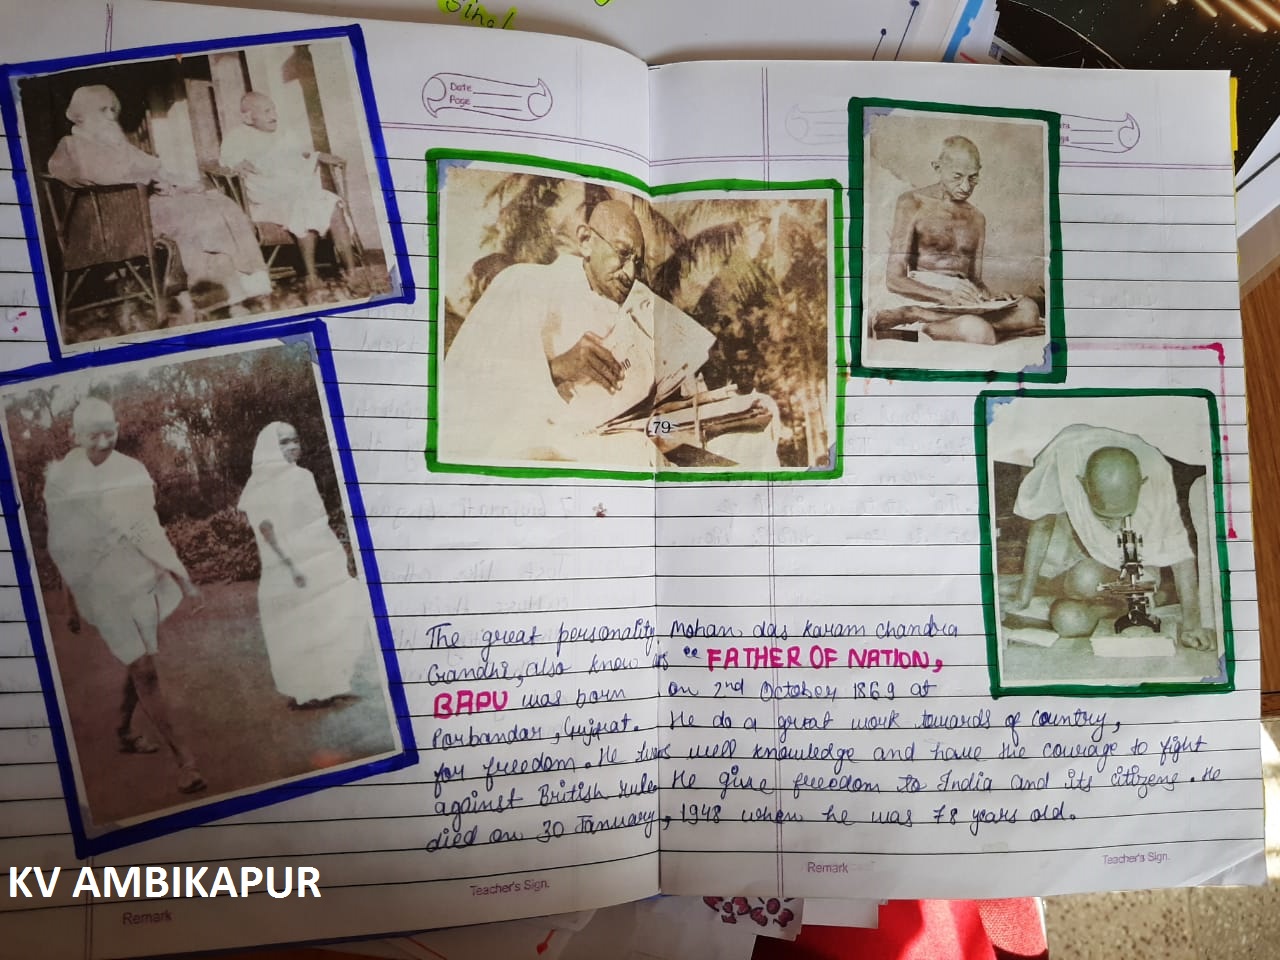 Sing!
Date
Page
79
The great personality, Mohan das Karam chandra
Gandhi, also know as "FATHER OF NATION,
BAPU was born on 2nd October 1869 at
Porbandar, Gujrat. He do a great work towards of country,
for freedom. He was well knowledge and have the courage to fight
against British rule. He give freedom to India and its citizens. He
died on 30 January, 1948 when he was 78 years old.
Remark
Teacher's Sign.
Remark
Teacher's Sign.
KV AMBIKAPUR